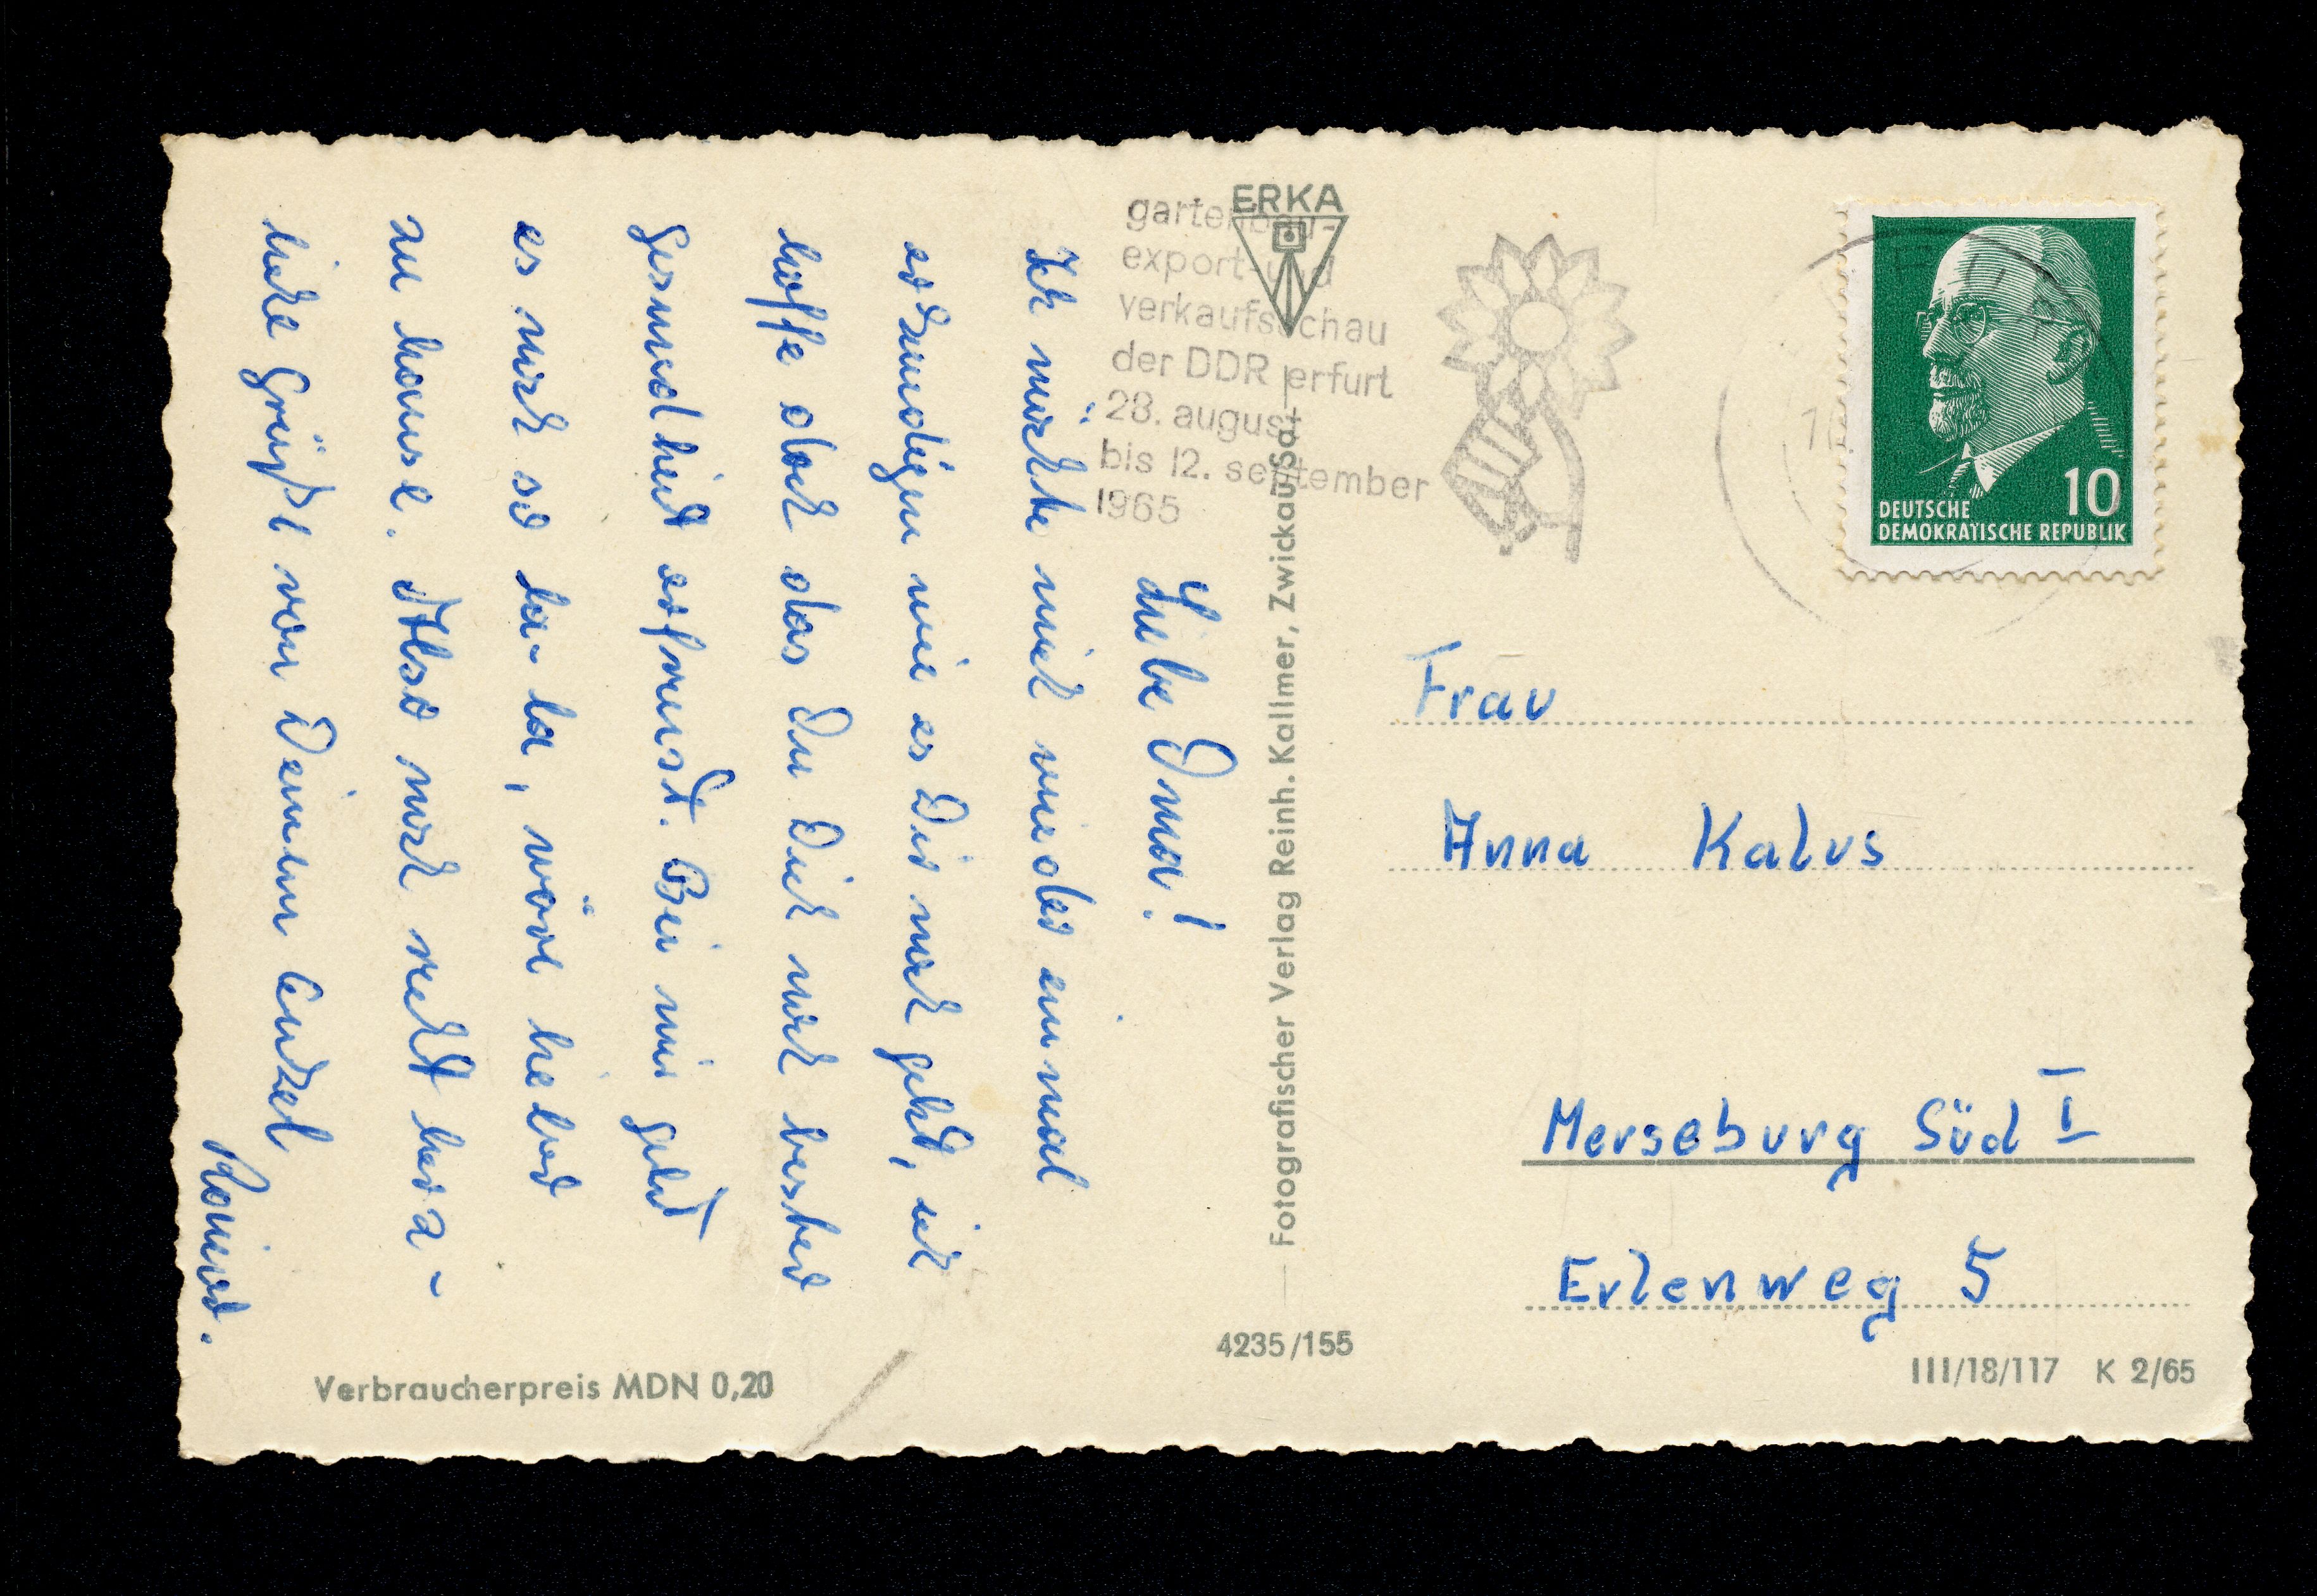 Liebe Oma!
Ich möchte mich wieder einmal
erkundigen wie es Dir noch gehd, ich
hoffe doch das Du Dich noch bester
Gesundheit erfreust. Bei mir gehd
es noch so la-la, wäre lieber
zu hause. Also noch recht herz-
liche Grüße von Deinem Enkel
Rainer.
ERKA
gartenbau-
export-und
verkaufsschau
der DDR erfurt
28. august
bis 12. september
1965
Fotografischer Verlag Reinh. Kallmer, Zwickau Sa.
10
DEUTSCHE
DEMOKRATISCHE REPUBLIK
Frau
Anna Kalus
Merseburg Süd I
Erlenweg 5
Verbraucherpreis MDN 0,20
4235/155
III/18/117 K 2/65